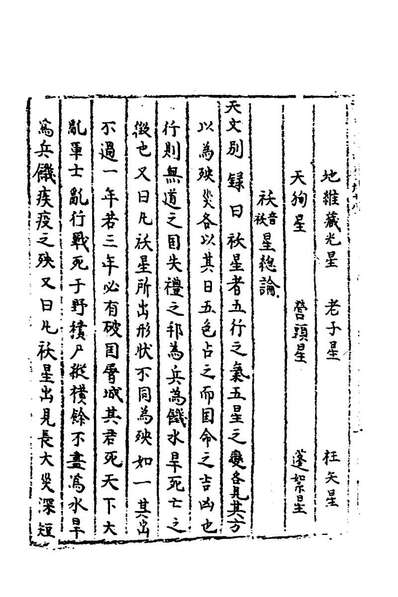 地維藏光星　老子星　枉矢星
天狗星　營頭星　蓬絮星
祅音祅星總論
天文別錄曰祅星者五行之氣五星之變各見其方
以為殃災各以其日五色占之而国命之吉凶也
行則無道之囯失禮之邦為兵為饑水旱死亡之
徵也又曰凡祅星所出形狀不同為殃如一其出
不過一年若三年必有破囯屠城其君死天下大
亂軍士亂行戰死于野積尸縱橫餘不盡為水旱
為兵饑疾疫之殃又曰凡祅星出見長大災深短